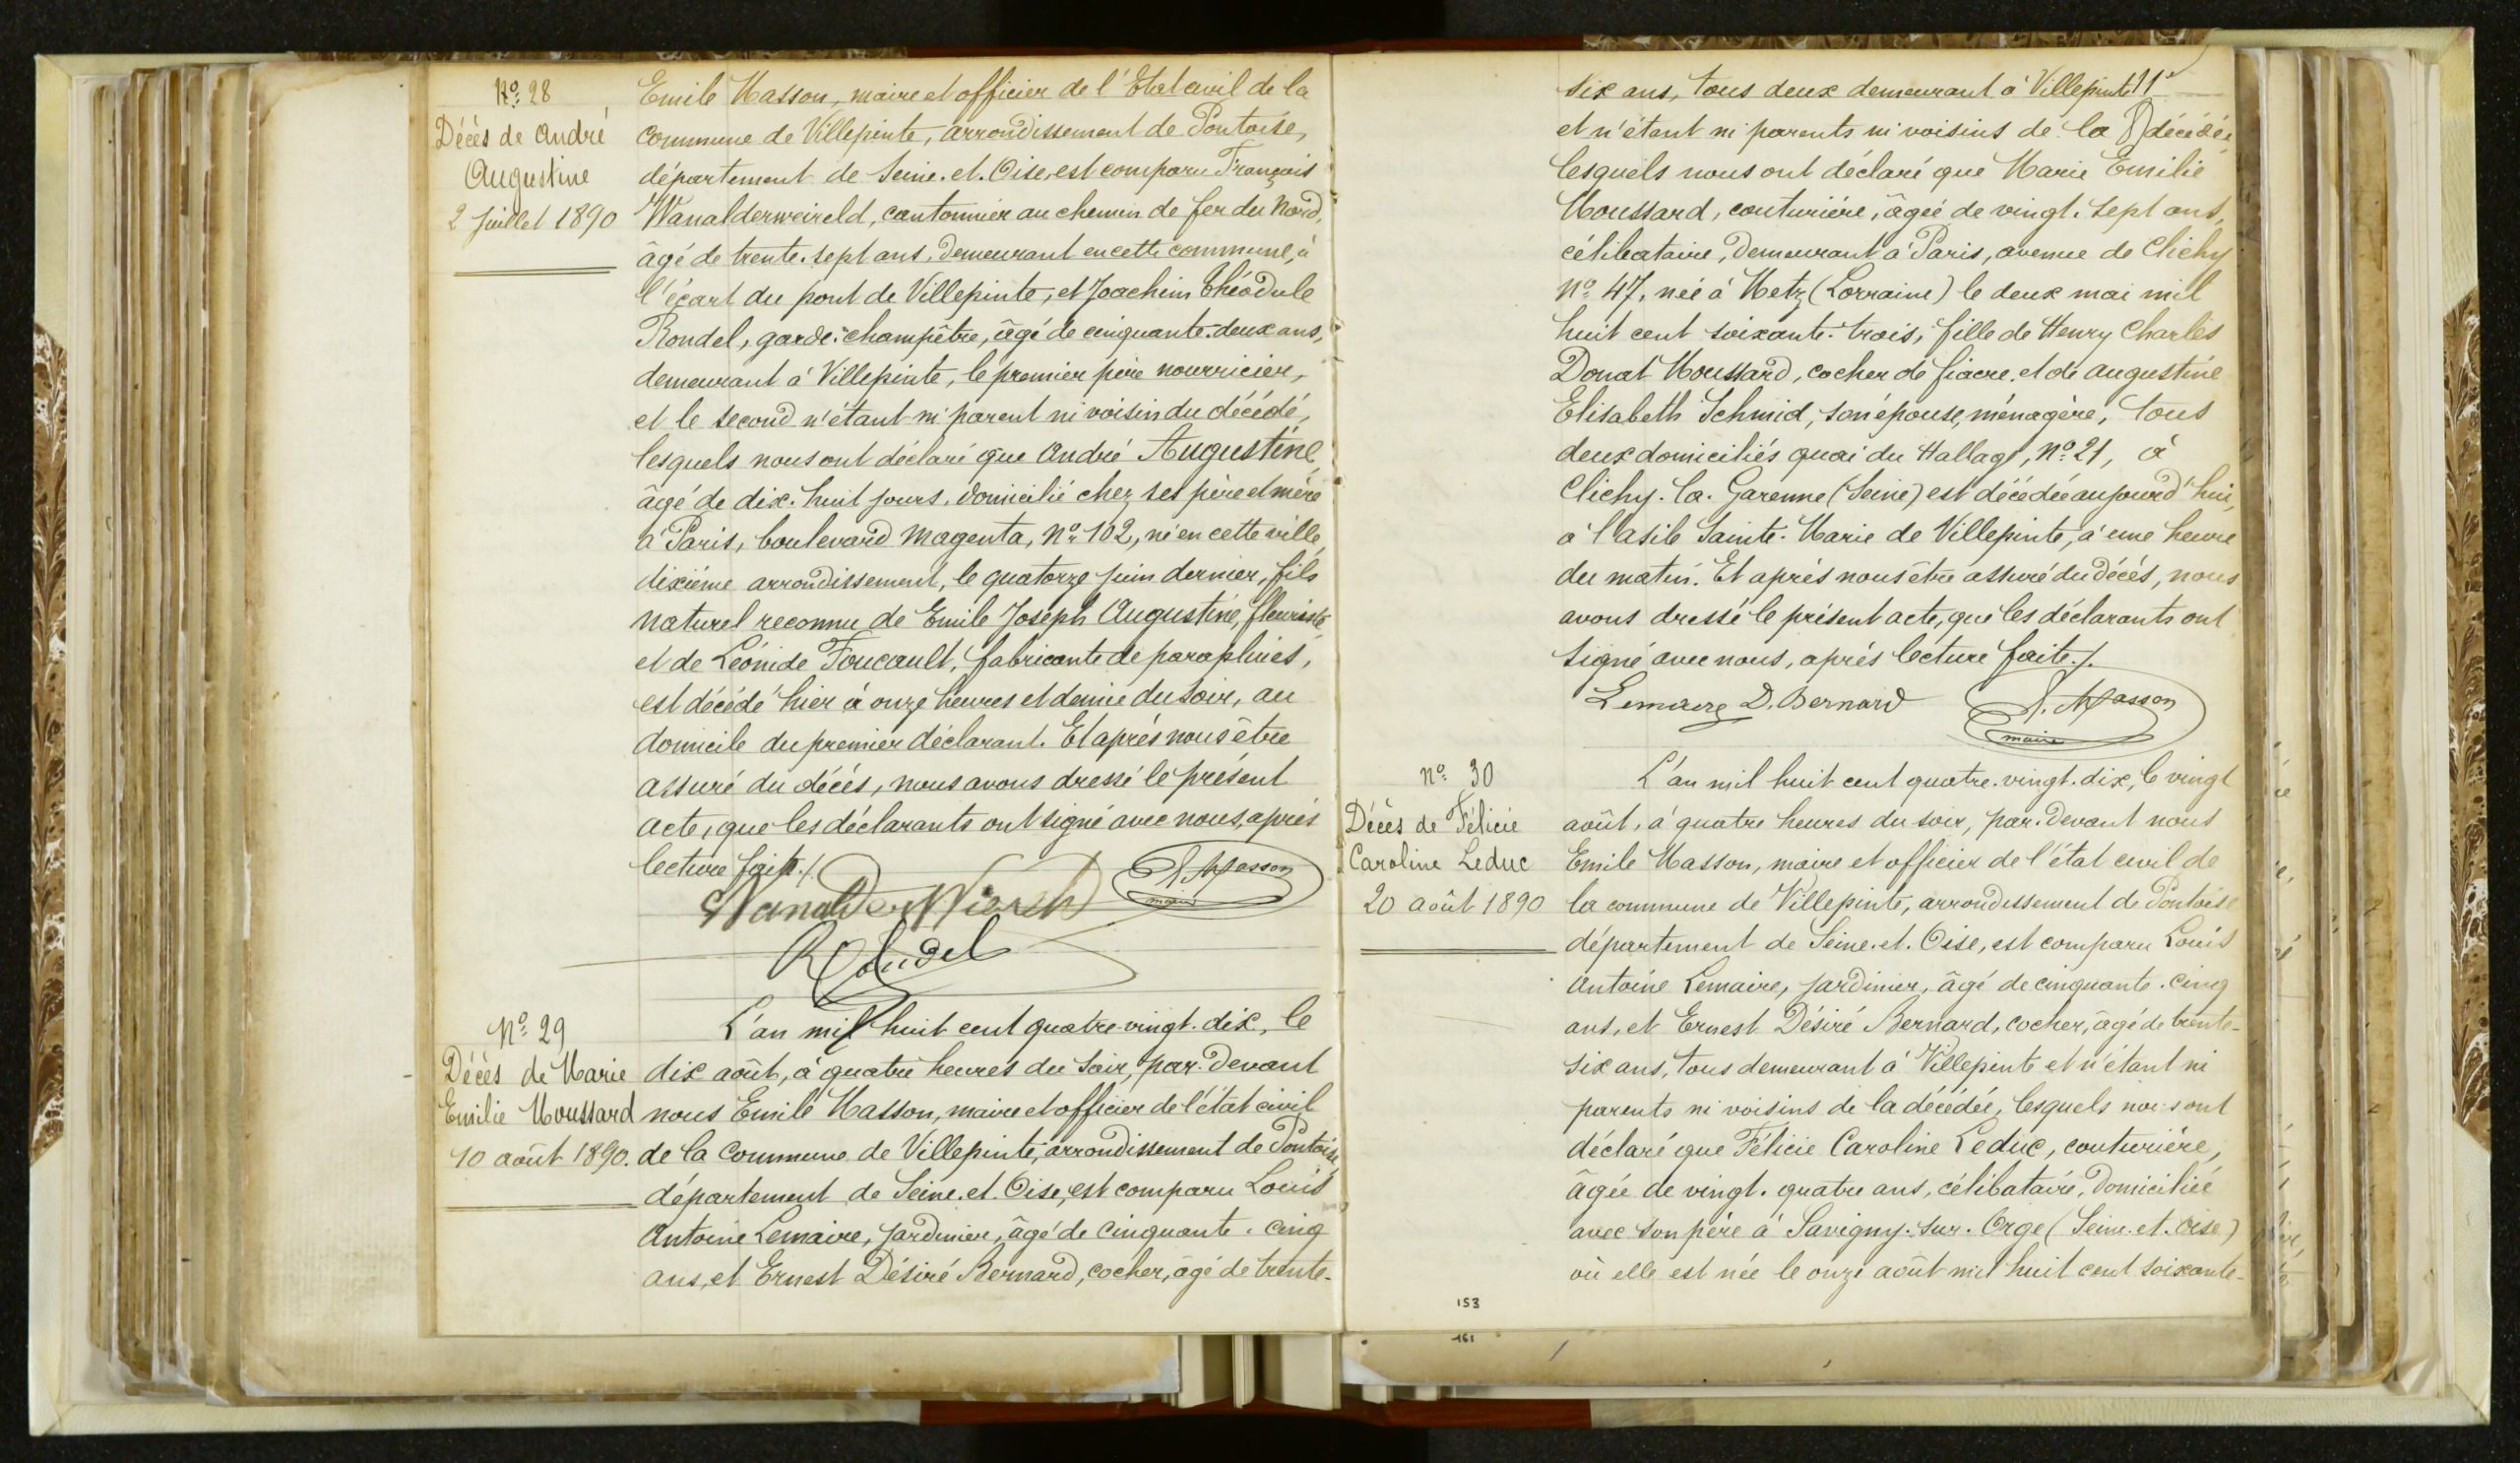 No. 28
Décès de André
Augustine
2 Juillet 1890
Emile Masson, maire et officier de l'Etat civil de la
commune de Villepinte, arrondissement de Pontoise,
département de Seine-et-Oise, est comparu François
Wanalderweireld, cantonnier au chemin de fer du Nord,
âgé de trente-sept ans, demeurant en cette commune, à
l'écart du pont de Villepinte, et Joachim Théodule
Rondel, garde-champêtre, âgé de cinquante-deux ans,
demeurant à Villepinte, le premier père nourricier,
et le second n'étant ni parent ni voisin du décédé,
lesquels nous ont déclaré que André Augustine
âgé de dix-huit jours, domicilié chez ses père et mère
à Paris, boulevard Magenta, No. 102, né en cette ville
dixième arrondissement, le quatorze juin dernier, fils
naturel reconnu de Emile Joseph Augustine, fleuriste
et de Léonide Foucault, fabricante de parapluies,
est décédé hier à onze heures et demie du soir, au
domicile du premier déclarant. Et après nous être
assuré du décès, nous avons dressé le présent
acte, que les déclarants ont signé avec nous, après
lecture faite./.
E. Masson
maire
Rondel
No. 29
Décès de Marie
Emilie Moussard
10 août 1890.
L'an mil huit cent quatre-vingt-dix, le
dix août, à quatre heures du soir, par-devant
nous Emile Masson, maire et officier de l'état civil
de la Commune de Villepinte, arrondissement de Pontoise
département de Seine-et-Oise, est comparu Louis
Antoine Lemaire, jardinier, âgé de cinquante-cinq
ans, et Ernest Désiré Bernard, cocher, âgé de trente-
six ans, tous deux demeurant à Villepinte
et n'étant ni parents ni voisins de la décédée
lesquels nous ont déclaré que Marie Emilie
Moussard, couturière, âgée de vingt-sept ans,
célibataire, demeurant à Paris, avenue de Clichy
No. 47, née à Metz (Lorraine) le deux mai mil
huit cent soixante-trois, fille de Henry Charles
Donat Moussard, cocher de fiacre, et de Augustine
Elisabeth Schmid, son épouse, ménagère, tous
deux domiciliés quai du Hallage, No. 21, à
Clichy-la-Garenne (Seine) est décédée aujourd'hui,
à l'asile Sainte-Marie de Villepinte, à une heure
du matin. Et après nous être assuré du décès, nous
avons dressé le présent acte, que les déclarants ont
signé avec nous, après lecture faite./.
Lemaire D. Bernard E. Masson
maire
No. 30
Décès de Félicie
Caroline Leduc
20 août 1890
L'an mil huit cent quatre-vingt-dix, le vingt
août, à quatre heures du soir, par-devant nous
Emile Masson, maire et officier de l'état civil de
la commune de Villepinte, arrondissement de Pontoise
département de Seine-et-Oise, est comparu Louis
Antoine Lemaire, jardinier, âgé de cinquante-cinq
ans, et Ernest Désiré Bernard, cocher, âgé de trente-
six ans, tous demeurant à Villepinte et n'étant ni
parents ni voisins de la décédée, lesquels nous ont
déclaré que Félicie Caroline Leduc, couturière,
âgée de vingt-quatre ans, célibataire, domiciliée
avec son père à Savigny-sur-Orge (Seine-et-Oise)
où elle est née le onze août mil huit cent soixante-
153
161